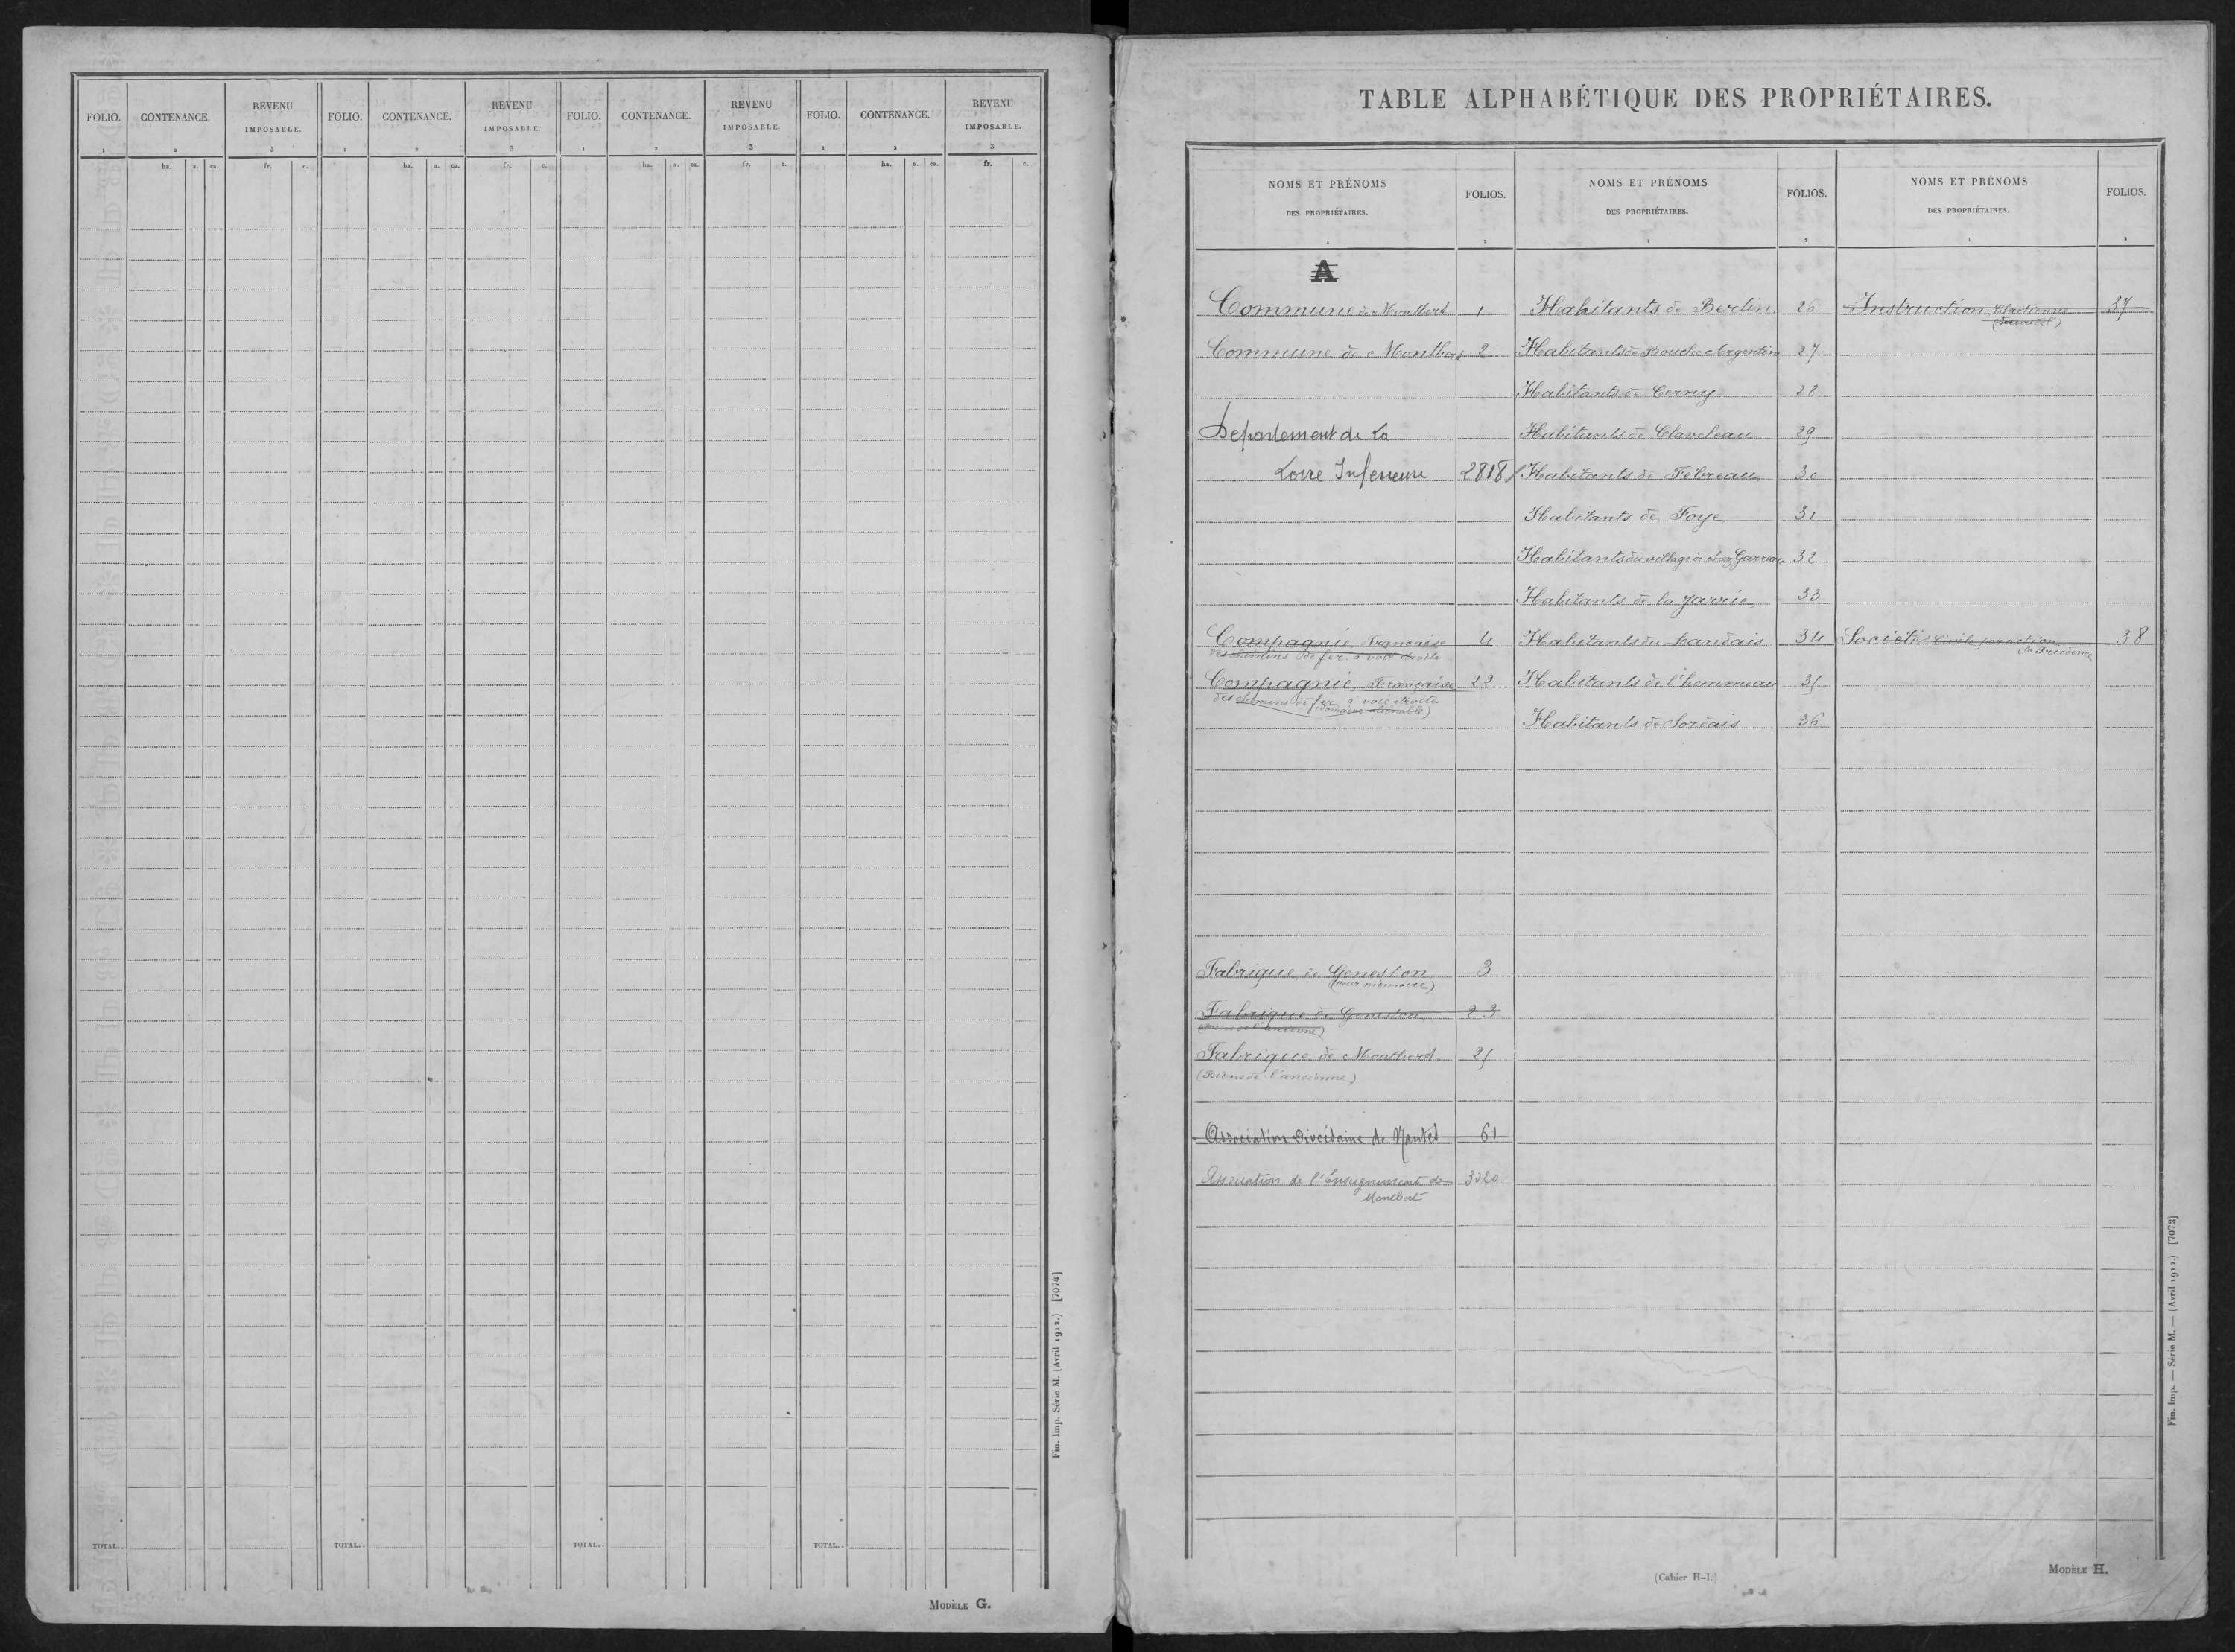 FOLIO. CONTENANCE. REVENU IMPOSABLE. FOLIO. CONTENANCE. REVENU IMPOSABLE. FOLIO. CONTENANCE. REVENU IMPOSABLE. FOLIO. CONTENANCE. REVENU IMPOSABLE.
1 2 3 1 2 3 1 2 3 1 2 3
ha. a. ca. fr. c. ha. a. ca. fr. c. ha. a. ca. fr. c. ha. a. ca. fr. c.
TOTAL.. TOTAL.. TOTAL.. TOTAL..
Fin. Imp. Série M. (Avril 1912.) [7074]
MODÈLE G.
TABLE ALPHABÉTIQUE DES PROPRIÉTAIRES.
NOMS ET PRÉNOMS
DES PROPRIÉTAIRES.
1
FOLIOS.
2
NOMS ET PRÉNOMS
DES PROPRIÉTAIRES.
1
FOLIOS.
2
NOMS ET PRÉNOMS
DES PROPRIÉTAIRES.
1
FOLIOS.
2
A
Commune de Montbert 1
Commune de Montbert 2
Departement de La
Loire Inferieure 2818
Compagnie Française 4
des chemins de fer à voie étroite
Compagnie Française 22
des chemins de fer à voie étroite
(domaine aliénable)
Fabrique de Geneston 3
(pour mémoire)
Fabrique de Geneston 23
l'ancienne)
Fabrique de Montbert 25
(Biens de l'ancienne)
Association Diocésaine de Nantes 61
Association de l'Enseignement de 3020
Montbert
Habitants de Bertin 26
Habitants de Bouche Argentière 27
Habitants de Cerny 28
Habitants de Claveleau 29
Habitants de Fébreau 30
Habitants de Foye 31
Habitants du village de chez Garreau 32
Habitants de la Jarrie 33
Habitants du Landais 34
Habitants de l'hommeau 35
Habitants de Sordais 36
Instruction Chrétienne 37
(Soeurs de l')
Société Civile par action 38
(la Prudence
Fin. Imp. — Série M. — (Avril 1912.) [7072]
(Cahier H-1.)
MODÈLE H.